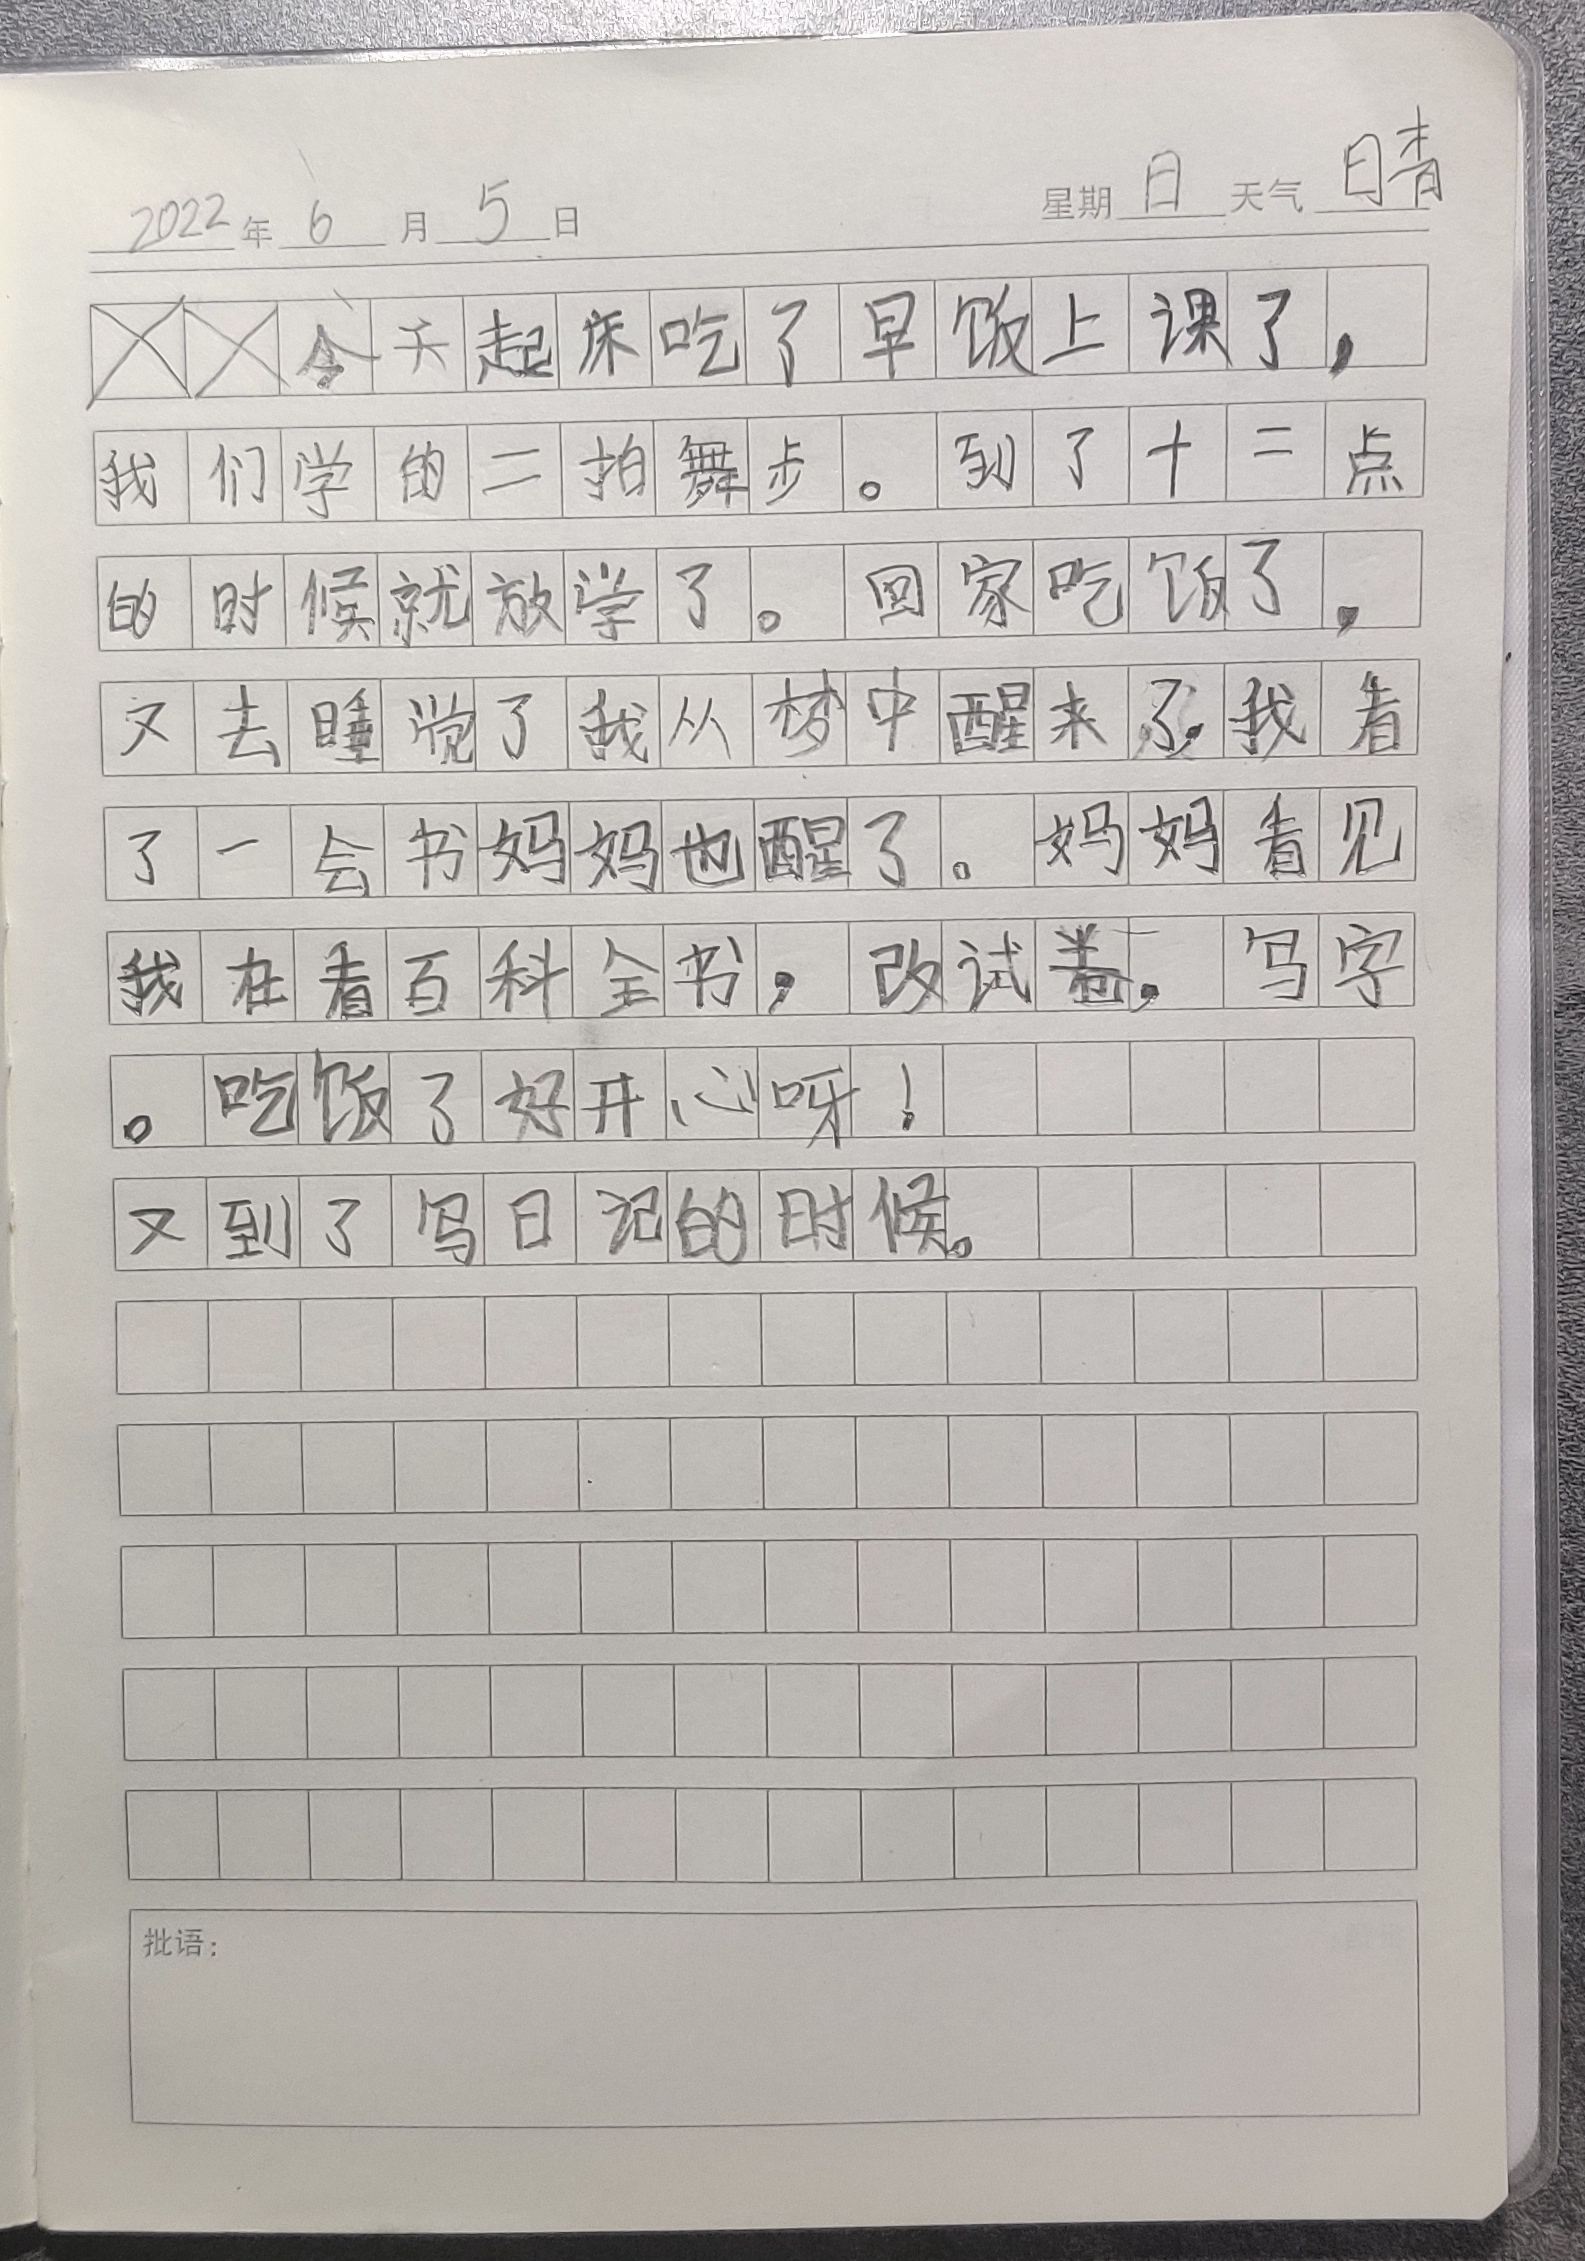 2022年6月5日 星期日 天气晴
今天起床吃了早饭上课了，
我们学的二拍舞步。到了十二点
的时候就放学了。回家吃饭了，
又去睡觉了我从梦中醒来了，我看
了一会书妈妈也醒了。妈妈看见
我在看百科全书，改试卷，写字
。吃饭了好开心呀！
又到了写日记的时候。
批语：